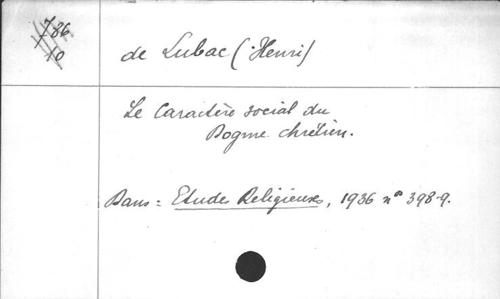 786
10
de Lubac (Henri)
Le Caractère social du
Dogme chrétien.
Dans = Etudes Religieuses, 1936 nos 398-9.